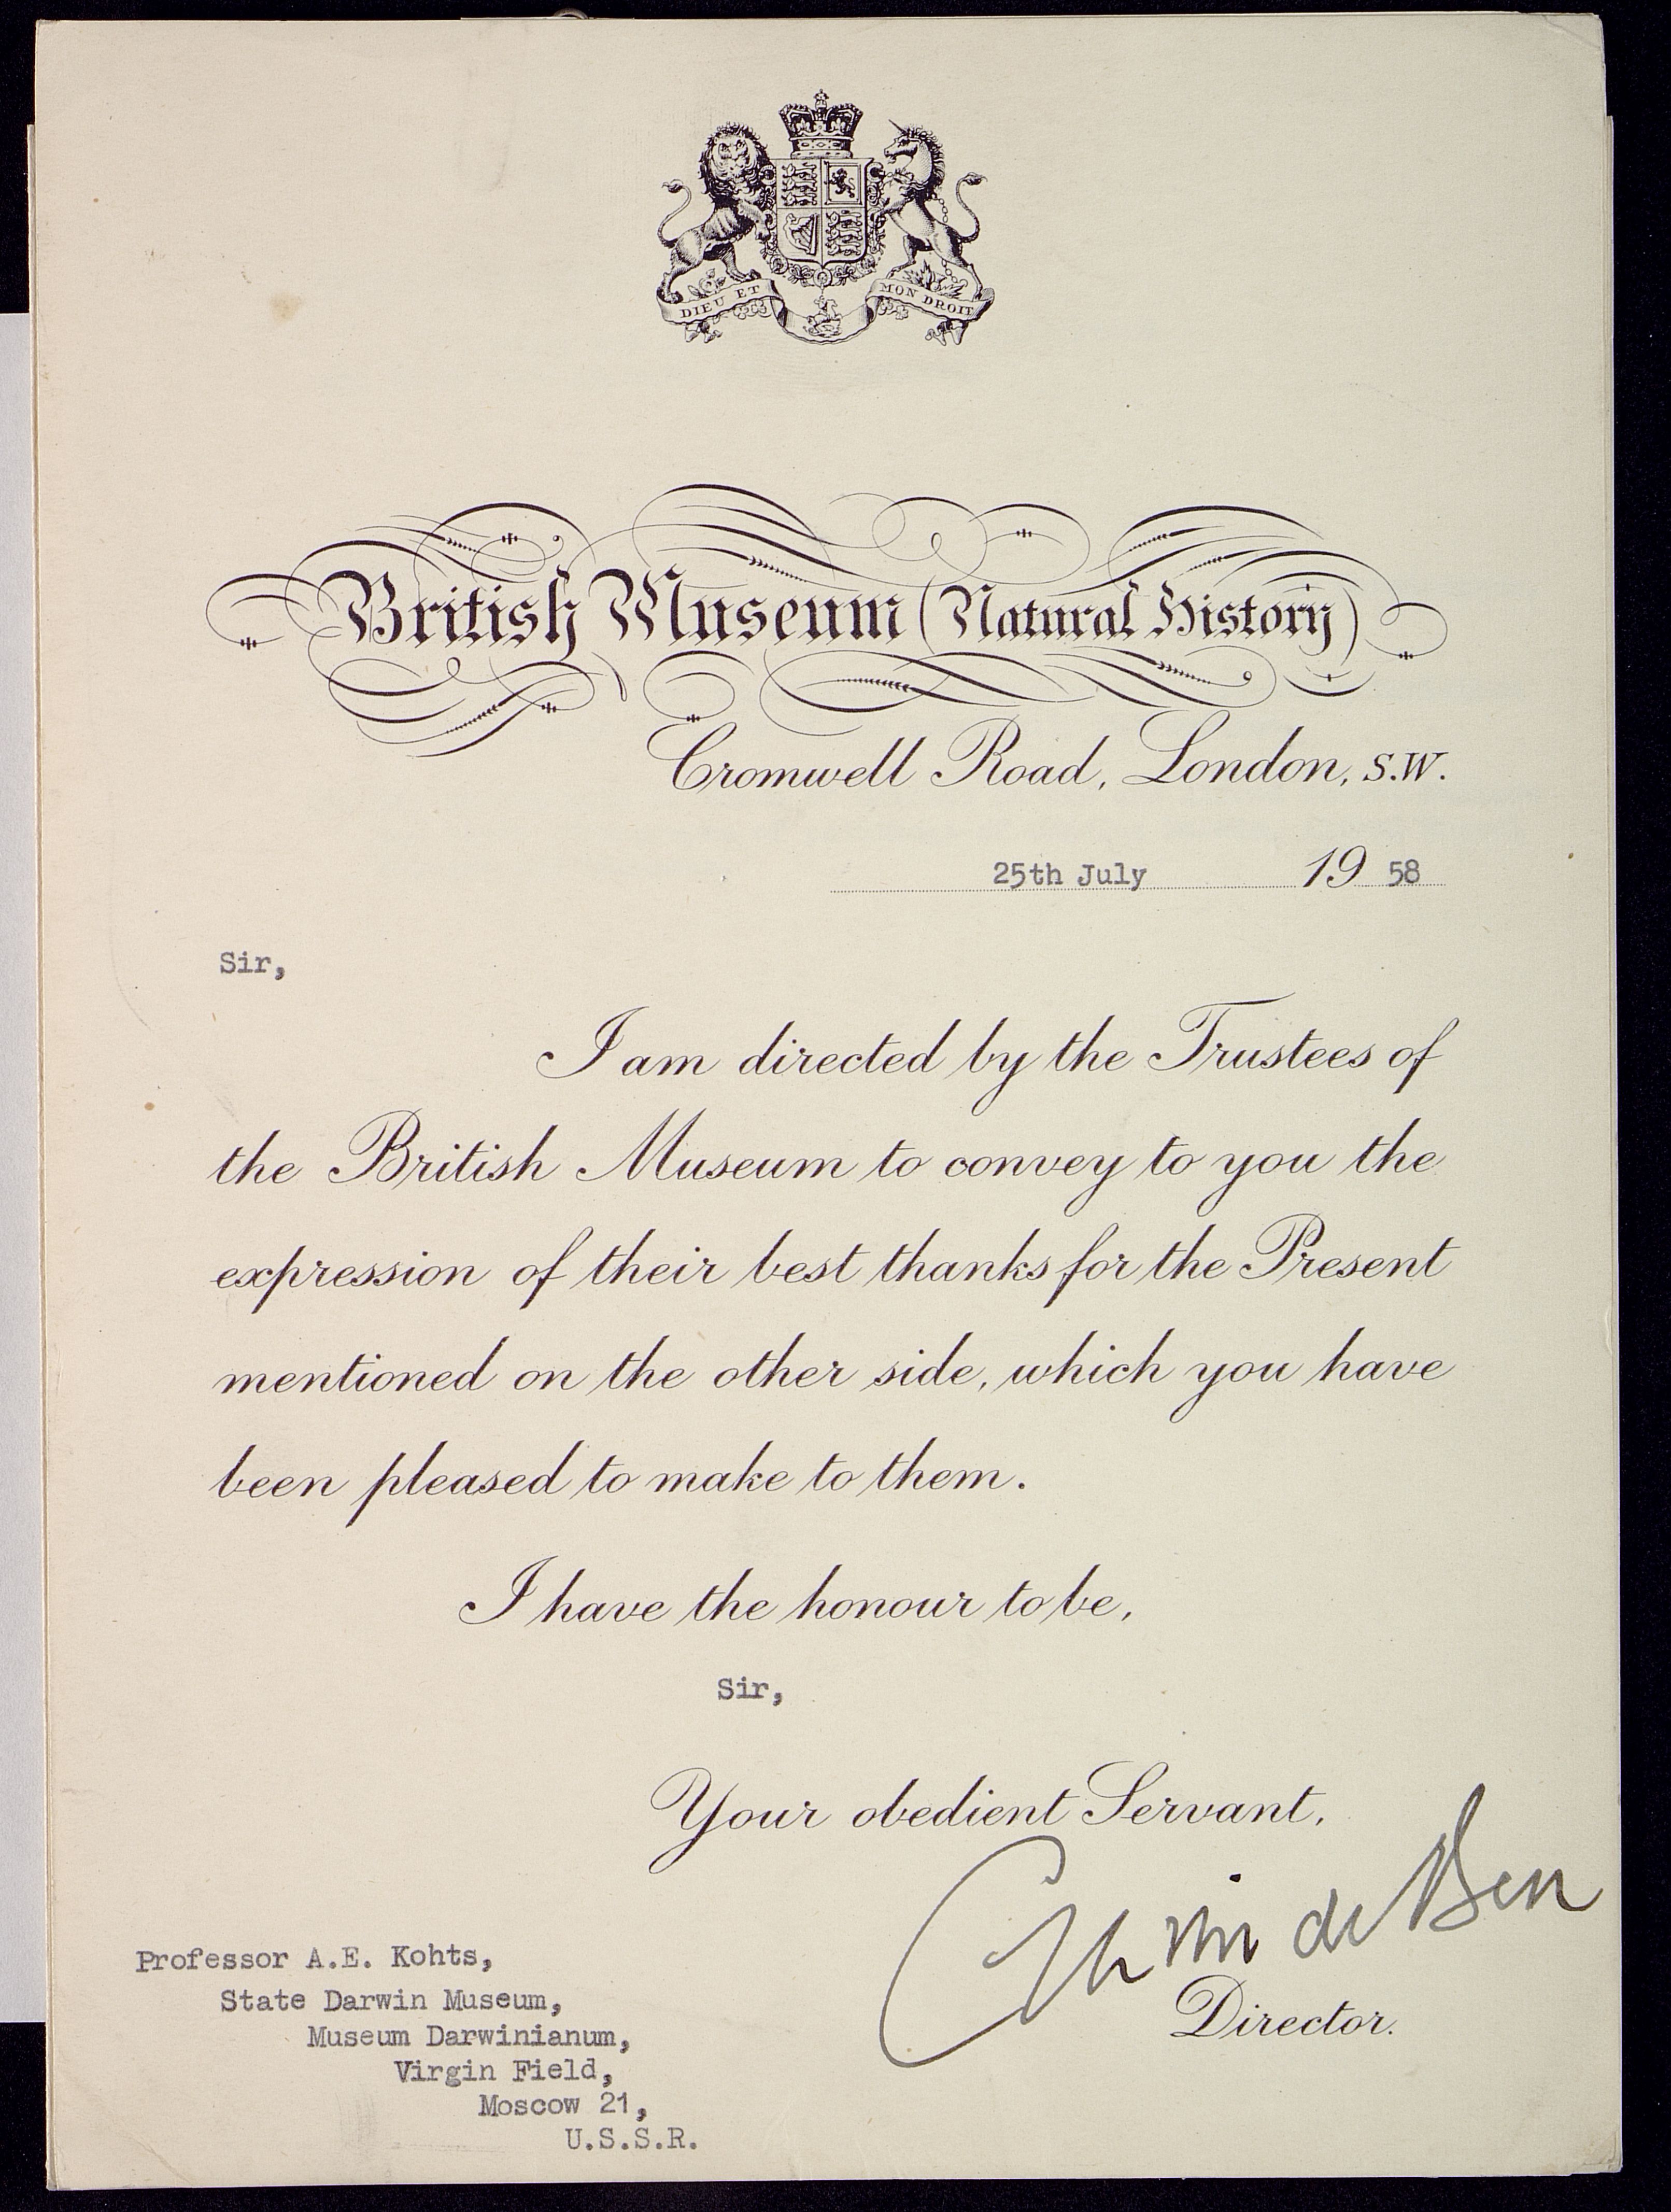 DIEU ET MON DROIT
British Museum (Natural History)
Cromwell Road, London, S.W.
25th July 19 58
Sir,
I am directed by the Trustees of
the British Museum to convey to you the
expression of their best thanks for the Present
mentioned on the other side, which you have
been pleased to make to them.
I have the honour to be,
Sir,
Your obedient Servant,
Director.
Professor A.E. Kohts,
State Darwin Museum,
Museum Darwinianum,
Virgin Field,
Moscow 21,
U.S.S.R.